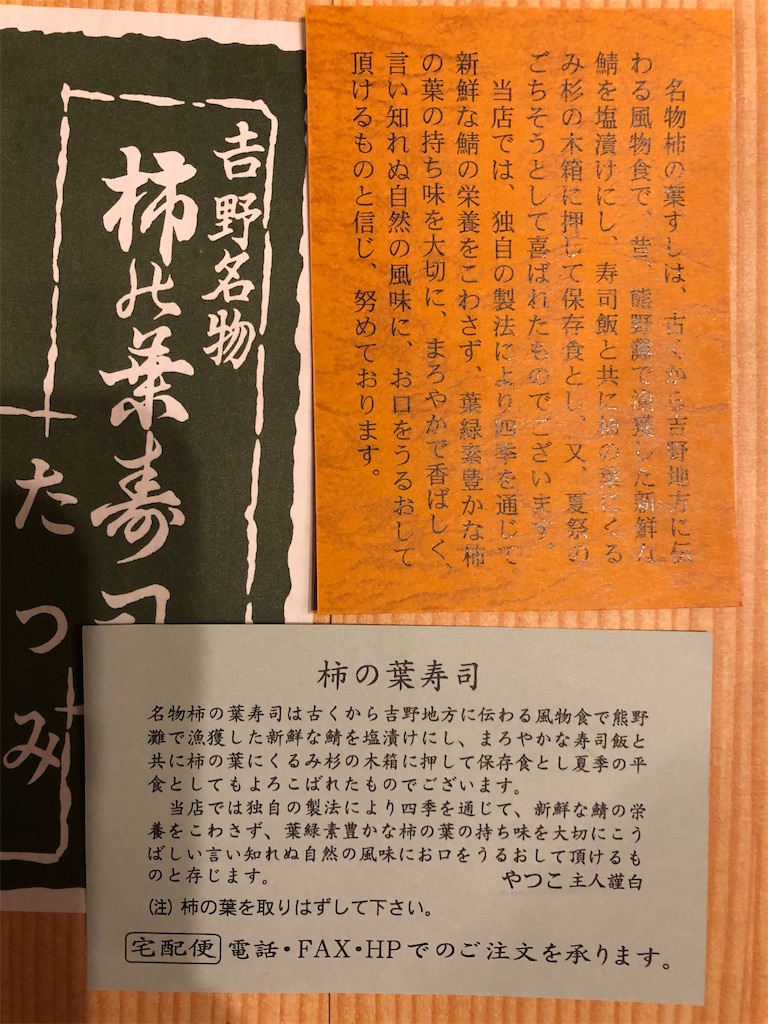 吉野名物
柿の葉寿司
たつみ
名物柿の葉ずしは、古くから吉野地方に伝
わる風物食で、昔、熊野灘で漁獲した新鮮な
鯖を塩漬けにし、寿司飯と共に柿の葉にくる
み杉の木箱に押して保存食とし、又、夏祭の
ごちそうとして喜ばれたものでございます。
当店では、独自の製法により四季を通じて
新鮮な鯖の栄養をこわさず、葉緑素豊かな柿
の葉の持ち味を大切に、まろやかで香ばしく、
言い知れぬ自然の風味に、お口をうるおして
頂けるものと信じ、努めております。
柿の葉寿司
名物柿の葉寿司は古くから吉野地方に伝わる風物食で熊野
灘で漁獲した新鮮な鯖を塩漬けにし、まろやかな寿司飯と
共に柿の葉にくるみ杉の木箱に押して保存食とし夏季の平
食としてもよろこばれたものでございます。
当店では独自の製法により四季を通じて、新鮮な鯖の栄
養をこわさず、葉緑素豊かな柿の葉の持ち味を大切にこう
ばしい言い知れぬ自然の風味にお口をうるおして頂けるも
のと存じます。 やつこ主人謹白
(注)柿の葉を取りはずして下さい。
宅配便 電話・FAX・HPでのご注文を承ります。